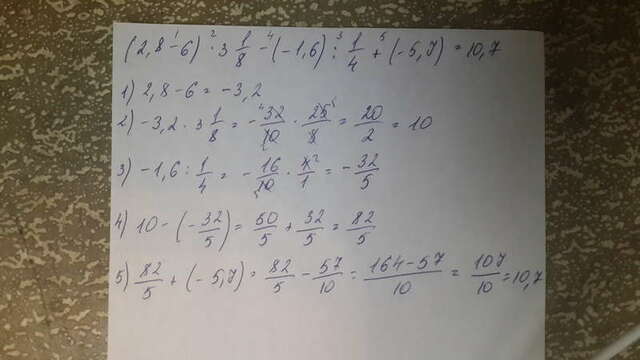 (2,8 - 6) · 3 1/8 - (-1,6) : 1/4 + (-5,7) = 10,7
1) 2,8 - 6 = -3,2
2) -3,2 · 3 1/8 = -32/10 · 25/8 = 20/2 = 10
3) -1,6 : 1/4 = -16/10 · 4/1 = -32/5
4) 10 - (-32/5) = 50/5 + 32/5 = 82/5
5) 82/5 + (-5,7) = 82/5 - 57/10 = 164-57/10 = 107/10 = 10,7